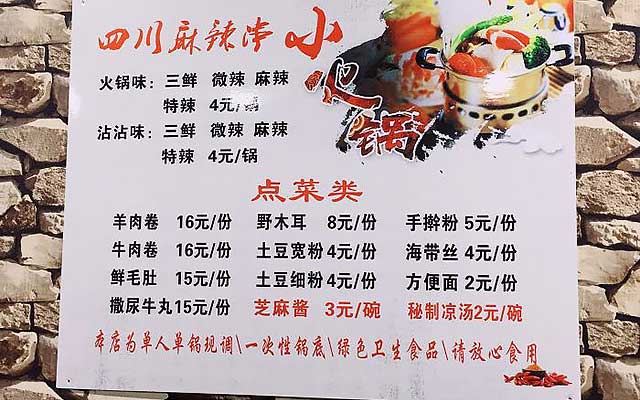 四川麻辣串 小火锅
火锅味：三鲜 微辣 麻辣
特辣 4元/锅
沾沾味：三鲜 微辣 麻辣
特辣 4元/锅
点菜类
羊肉卷 16元/份 野木耳 8元/份 手擀粉 5元/份
牛肉卷 16元/份 土豆宽粉 4元/份 海带丝 4元/份
鲜毛肚 15元/份 土豆细粉 4元/份 方便面 2元/份
撒尿牛丸 15元/份 芝麻酱 3元/碗 秘制凉汤 2元/碗
本店为单人单锅现调\一次性锅底\绿色卫生食品\请放心食用